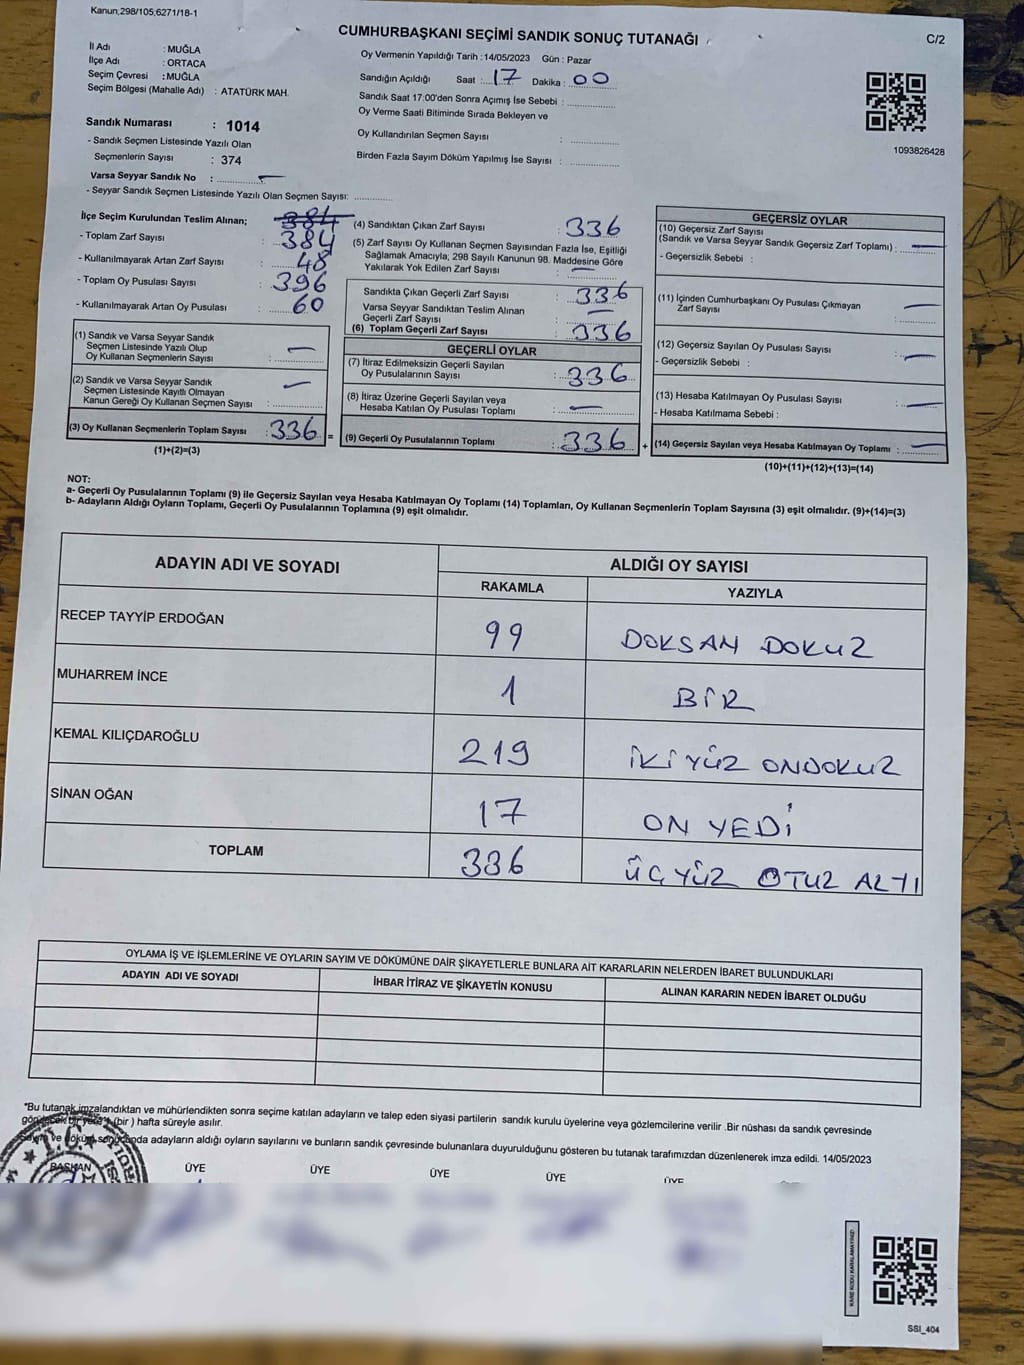 Kanun,298/105,6271/18-1
CUMHURBAŞKANI SEÇİMİ SANDIK SONUÇ TUTANAĞI
C/2
İl Adı : MUĞLA
İlçe Adı : ORTACA
Seçim Çevresi : MUĞLA
Seçim Bölgesi (Mahalle Adı) : ATATÜRK MAH.
Oy Vermenin Yapıldığı Tarih :14/05/2023 Gün : Pazar
Sandığın Açıldığı Saat : 17 Dakika : 00
Sandık Saat 17:00'den Sonra Açımış İse Sebebi :
Oy Verme Saati Bitiminde Sırada Bekleyen ve
Oy Kullandırılan Seçmen Sayısı :
Birden Fazla Sayım Döküm Yapılmış İse Sayısı :
1093826428
Sandık Numarası : 1014
- Sandık Seçmen Listesinde Yazılı Olan
Seçmenlerin Sayısı : 374
Varsa Seyyar Sandık No : —
- Seyyar Sandık Seçmen Listesinde Yazılı Olan Seçmen Sayısı:
İlçe Seçim Kurulundan Teslim Alınan; 384
- Toplam Zarf Sayısı : 384
- Kullanılmayarak Artan Zarf Sayısı : 48
- Toplam Oy Pusulası Sayısı : 396
- Kullanılmayarak Artan Oy Pusulası : 60
(1) Sandık ve Varsa Seyyar Sandık
Seçmen Listesinde Yazılı Olup
Oy Kullanan Seçmenlerin Sayısı : —
(2) Sandık ve Varsa Seyyar Sandık
Seçmen Listesinde Kayıtlı Olmayan
Kanun Gereği Oy Kullanan Seçmen Sayısı : —
(3) Oy Kullanan Seçmenlerin Toplam Sayısı : 336 =
(1)+(2)=(3)
(4) Sandıktan Çıkan Zarf Sayısı : 336
(5) Zarf Sayısı Oy Kullanan Seçmen Sayısından Fazla İse, Eşitliği
Sağlamak Amacıyla, 298 Sayılı Kanunun 98. Maddesine Göre
Yakılarak Yok Edilen Zarf Sayısı : —
Sandıkta Çıkan Geçerli Zarf Sayısı : 336
Varsa Seyyar Sandıktan Teslim Alınan
Geçerli Zarf Sayısı : —
(6) Toplam Geçerli Zarf Sayısı : 336
GEÇERLİ OYLAR
(7) İtiraz Edilmeksizin Geçerli Sayılan
Oy Pusulalarının Sayısı : 336
(8) İtiraz Üzerine Geçerli Sayılan veya
Hesaba Katılan Oy Pusulası Toplamı : —
(9) Geçerli Oy Pusulalarının Toplamı : 336 +
GEÇERSİZ OYLAR
(10) Geçersiz Zarf Sayısı
(Sandık ve Varsa Seyyar Sandık Geçersiz Zarf Toplamı) : —
- Geçersizlik Sebebi :
(11) İçinden Cumhurbaşkanı Oy Pusulası Çıkmayan
Zarf Sayısı : —
(12) Geçersiz Sayılan Oy Pusulası Sayısı : —
- Geçersizlik Sebebi :
(13) Hesaba Katılmayan Oy Pusulası Sayısı : —
- Hesaba Katılmama Sebebi :
(14) Geçersiz Sayılan veya Hesaba Katılmayan Oy Toplamı : —
(10)+(11)+(12)+(13)=(14)
NOT:
a- Geçerli Oy Pusulalarının Toplamı (9) ile Geçersiz Sayılan veya Hesaba Katılmayan Oy Toplamı (14) Toplamları, Oy Kullanan Seçmenlerin Toplam Sayısına (3) eşit olmalıdır. (9)+(14)=(3)
b- Adayların Aldığı Oyların Toplamı, Geçerli Oy Pusulalarının Toplamına (9) eşit olmalıdır.
ADAYIN ADI VE SOYADI ALDIĞI OY SAYISI
RAKAMLA YAZIYLA
RECEP TAYYİP ERDOĞAN 99 DOKSAN DOKUZ
MUHARREM İNCE 1 BİR
KEMAL KILIÇDAROĞLU 219 İKİ YÜZ ONDOKUZ
SİNAN OĞAN 17 ON YEDİ
TOPLAM 336 ÜÇ YÜZ OTUZ ALTI
OYLAMA İŞ VE İŞLEMLERİNE VE OYLARIN SAYIM VE DÖKÜMÜNE DAİR ŞİKAYETLERLE BUNLARA AİT KARARLARIN NELERDEN İBARET BULUNDUKLARI
ADAYIN ADI VE SOYADI İHBAR İTİRAZ VE ŞİKAYETİN KONUSU ALINAN KARARIN NEDEN İBARET OLDUĞU
"Bu tutanak imzalandıktan ve mühürlendikten sonra seçime katılan adayların ve talep eden siyasi partilerin sandık kurulu üyelerine veya gözlemcilerine verilir .Bir nüshası da sandık çevresinde
(bir ) hafta süreyle asılır.
Sayım ve döküm sonucunda adayların aldığı oyların sayılarını ve bunların sandık çevresinde bulunanlara duyurulduğunu gösteren bu tutanak tarafımızdan düzenlenerek imza edildi. 14/05/2023
BAŞKAN ÜYE ÜYE ÜYE ÜYE ÜYE
T.C.
KARE KODU KARALAMAYINIZ!
SSI_404